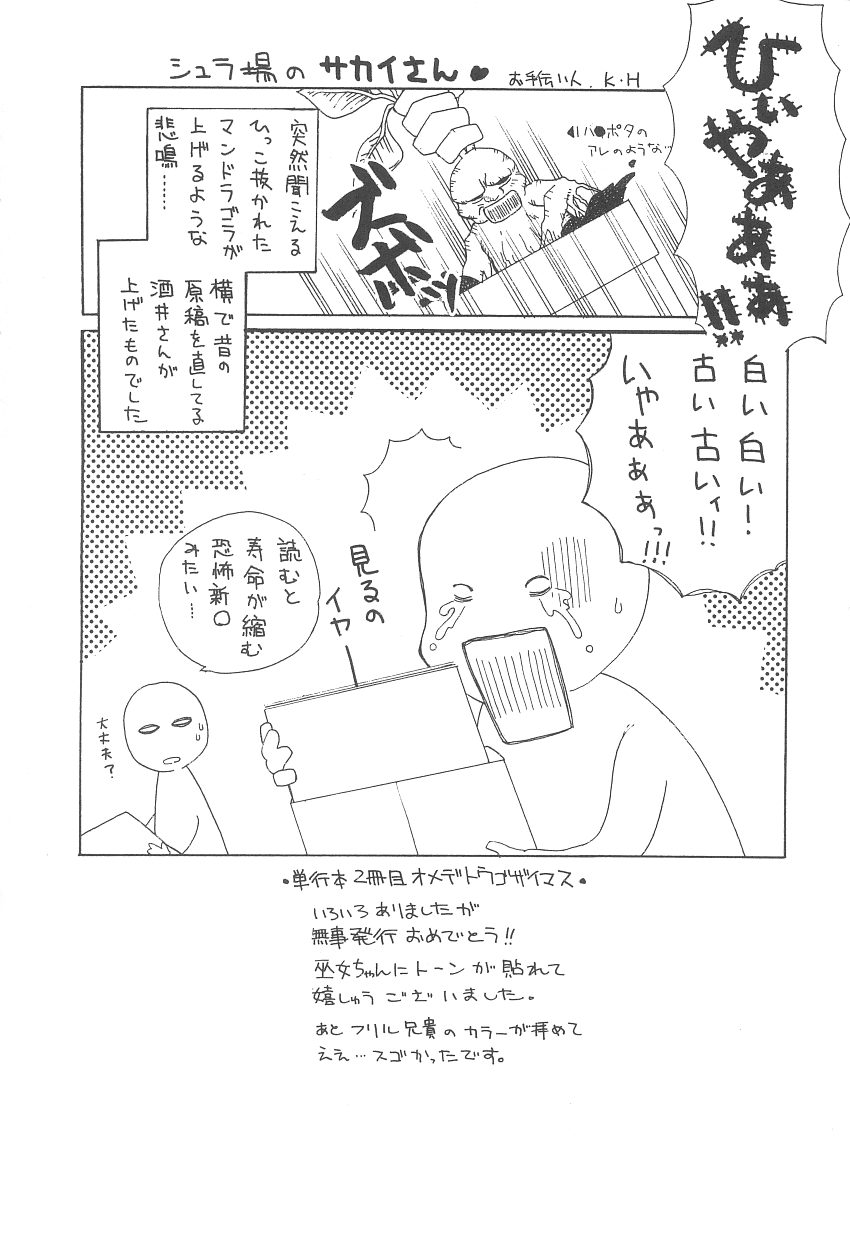 シュラ場の サカイさん♥
お手伝い人. K・H
ひぃやぁぁぁ!!
突然聞こえる
ひっこ抜かれた
マンドラゴラが
上げるような
悲鳴……
ズボッ
ハ●ポタの
アレのような
横で昔の
原稿を直してる
酒井さんが
上げたものでした
白い 白い!
古い 古いィ!!
いやあぁぁっ!!!
見るの
イヤー
読むと
寿命が縮む
恐怖新〇
みたい…
大丈夫?
・単行本2冊目オメデトウゴザイマス・
いろいろありましたが
無事発行 おめでとう!!
巫女ちゃんにトーンが貼れて
嬉しゅうございました。
あと フリル兄貴のカラーが拝めて
ええ…スゴかったです。